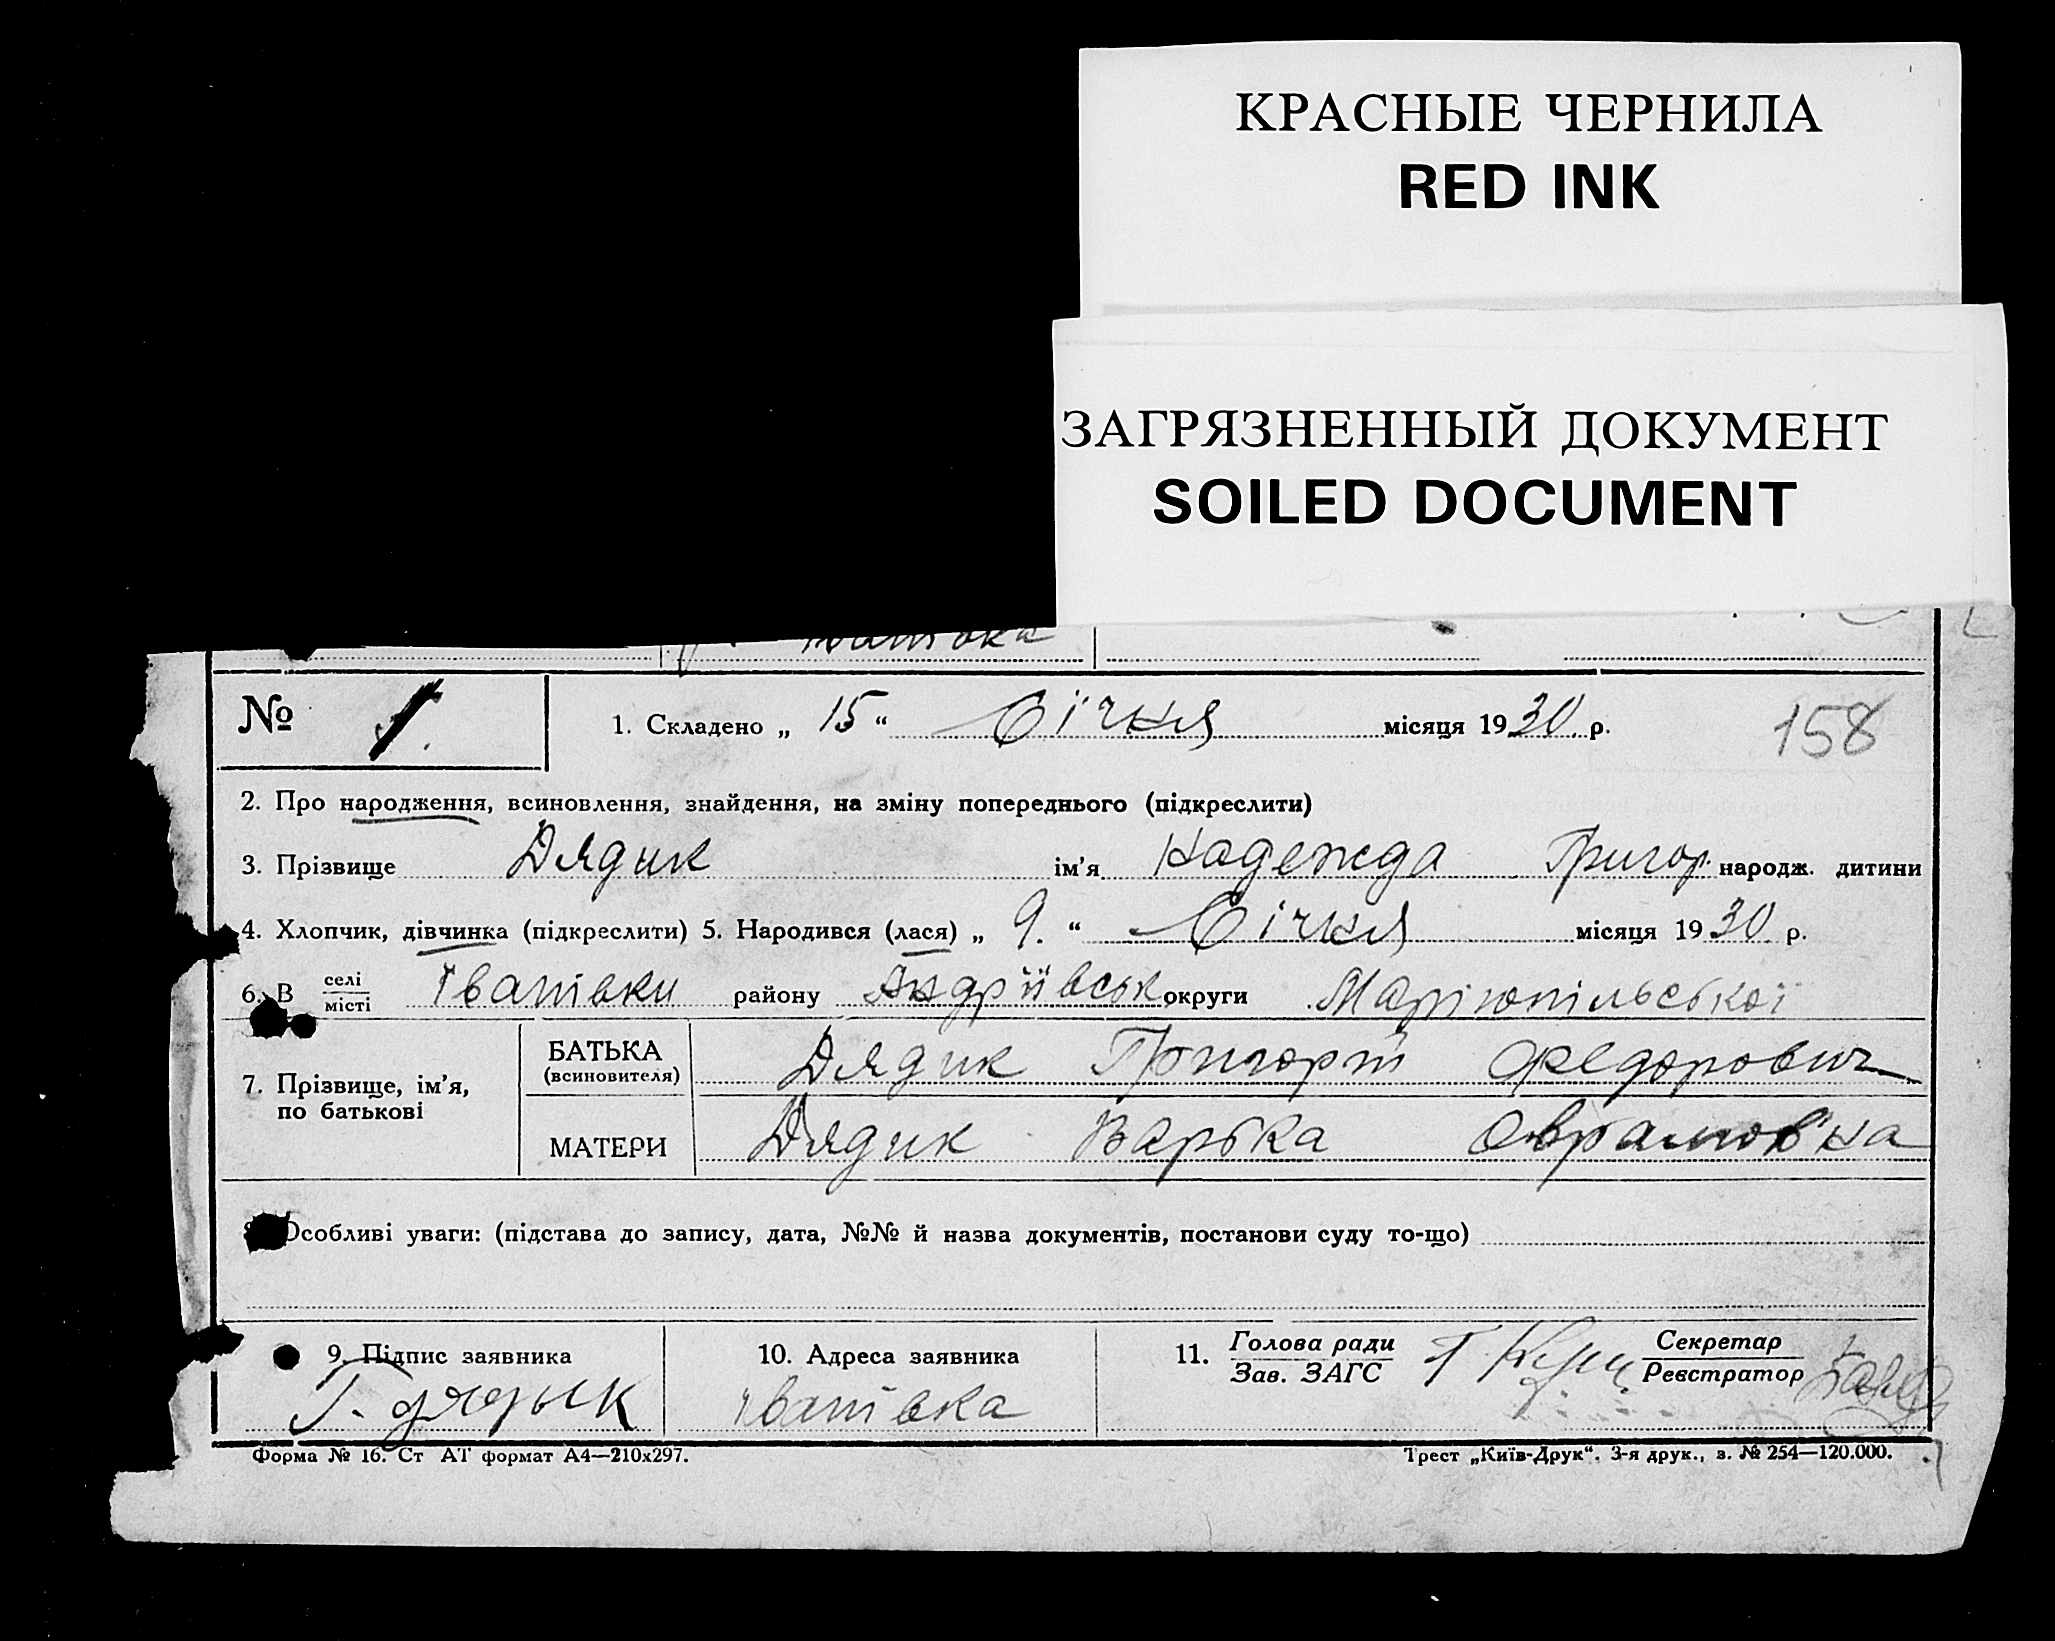 КРАСНЫЕ ЧЕРНИЛА
RED INK
ЗАГРЯЗНЕННЫЙ ДОКУМЕНТ
SOILED DOCUMENT
№ 1.
1. Складено „ 15 “ Січня місяця 1930 р.
158
2. Про народження, всиновлення, знайдення, на зміну попереднього (підкреслити)
3. Прізвище Дядик ім’я Надежда Григор. народж. дитини
4. Хлопчик, дівчинка (підкреслити) 5. Народився (лася) „ 9. “ Січня місяця 1930 р.
6. В селі/місті Іванівки району Андріївськ округи Маріюпільської
7. Прізвище, ім’я, по батькові
БАТЬКА (всиновителя) Дядик Григорій Федорович
МАТЕРИ Дядик Варька Оврамовна
Особливі уваги: (підстава до запису, дата, №№ й назва документів, постанови суду то-що)
9. Підпис заявника 10. Адреса заявника 11. Голова ради/Зав. ЗАГС Секретар/Реєстратор
Г. Дядык Іванівка
Форма № 16. Ст АТ формат А4—210х297. Трест „Київ-Друк“. 3-я друк., з. № 254—120.000.